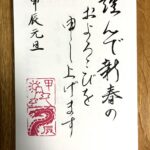 謹んで新春の
およろこびを
申し上げます
甲辰元旦